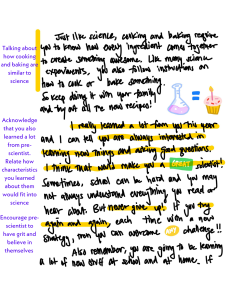 Talking about
how cooking
and baking are
similar to
science
Just like science, cooking and baking require
you to know how every ingredient comes together
to create something awesome. Like many science
experiments, you also follow instructions on
how to cook or bake something.
So keep doing it with your family
and try out all the new recipes!
Acknowledge
that you also
learned a lot
from pre-
scientist.
Relate how
characteristics
you learned
about them
would fit into
science
I really learned a lot from you this year
and I can tell you are always interested in
learning new things and asking good questions.
I think that would make you a GREAT scientist!
Sometimes, school can be hard and you may
not always understand everything you read or
hear about. But never give up! If you try
again and again, each time with a new
strategy, then you can overcome any challenge!!
Encourage pre-
scientist to
have grit and
believe in
themselves
Also remember, you are going to be learning
a lot of new stuff at school and at home. If